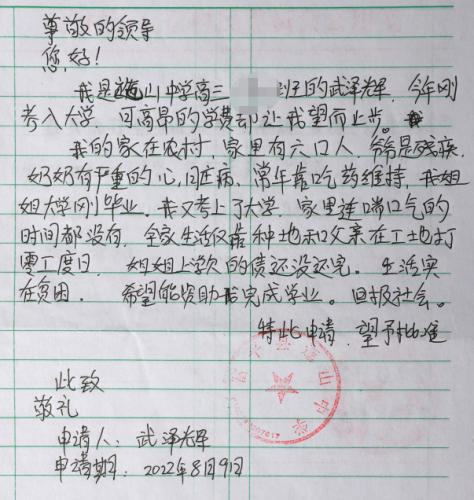 尊敬的领导
您好!
我是通山中学高三 班的武泽辉,今年刚
考入大学,可高昂的学费却让我望而止步。
我的家在农村,家里有六口人,爷爷是残疾,
奶奶有严重的心脏病,常年靠吃药维持,我姐
姐大学刚毕业。我又考上了大学,家里连喘口气的
时间都没有,全家生活仅靠种地和父亲在工地打
零工度日,姐姐上学欠的债还没还完。生活实
在贫困。希望能资助我完成学业。回报社会。
特此申请,望予批准
此致
敬礼
申请人:武泽辉
申请期:2022年8月9日
县通山中学